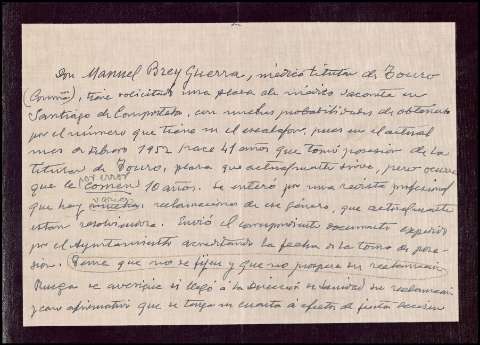 Don Manuel Brey Guerra, médico titular de Touro
(Coruña), tiene solicitado una plaza de médico vacante en
Santiago de Compostela, con muchas probabilidades de obtenerla
por el número que tiene en el escalafon, pues en el actual
mes de Febrero 1952 hace 41 años que tomó posesión de la
titular de Touro, plaza que actualmente sirve, pero ocurre
que le por error comen 10 años. Se enteró por una revista profesional
que hay varias muchas reclamaciones de ese género, que actualmente
están resolviendose. Envió el correspondiente documento expedido
por el Ayuntamiento acreditando la fecha de la toma de pose-
sion. Teme que no se fijen y que no prospere su reclamación
Ruega se averigue si llegó á la Dirección de Sanidad su reclamación
y caso afirmativo que se tenga en cuenta á efectos de justa